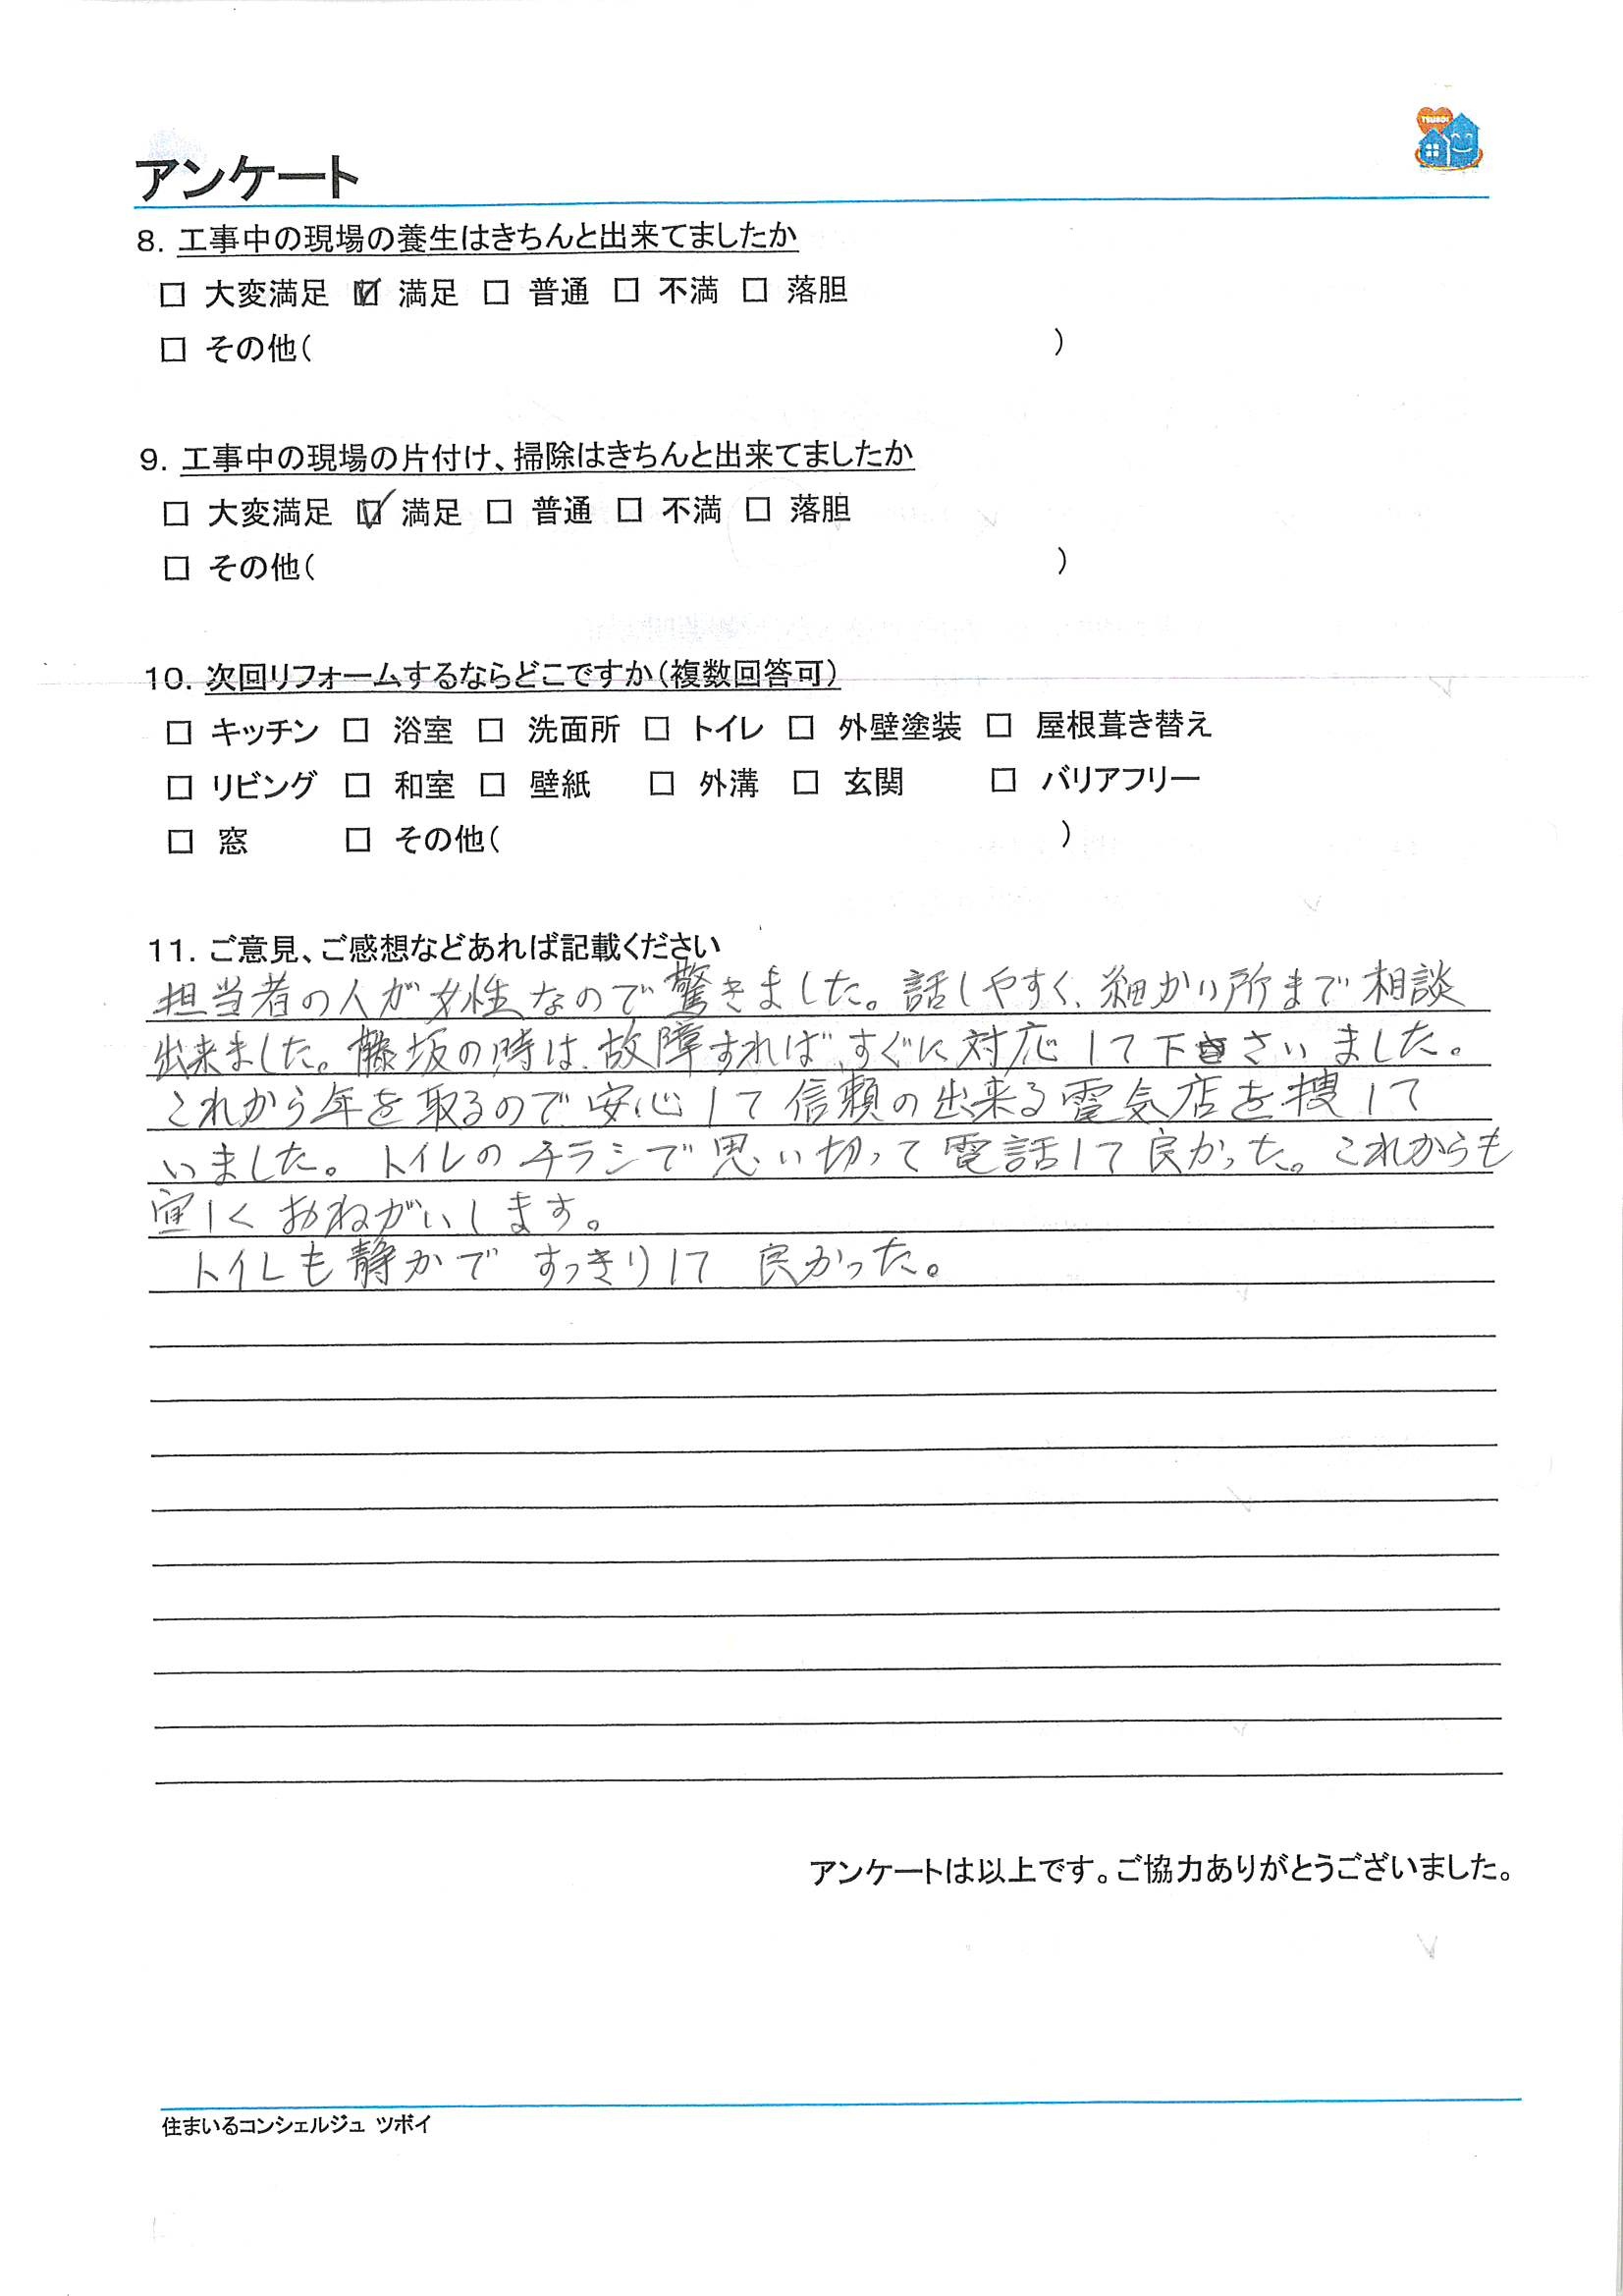 TSUBOI
アンケート
8. 工事中の現場の養生はきちんと出来てましたか
□ 大変満足 ☑ 満足 □ 普通 □ 不満 □ 落胆
□ その他( )
9. 工事中の現場の片付け、掃除はきちんと出来てましたか
□ 大変満足 ☑ 満足 □ 普通 □ 不満 □ 落胆
□ その他( )
10. 次回リフォームするならどこですか(複数回答可)
□ キッチン □ 浴室 □ 洗面所 □ トイレ □ 外壁塗装 □ 屋根葺き替え
□ リビング □ 和室 □ 壁紙 □ 外溝 □ 玄関 □ バリアフリー
□ 窓 □ その他( )
11. ご意見、ご感想などあれば記載ください
担当者の人が女性なので驚きました。話しやすく、細かい所まで相談
出来ました。藤坂の時は、故障すればすぐに対応して下さいました。
これから年を取るので安心して信頼の出来る電気店を捜して
いました。トイレのチラシで思い切って電話して良かった。これからも
宜しくおねがいします。
トイレも静かですっきりして良かった。
アンケートは以上です。ご協力ありがとうございました。
住まいるコンシェルジュ ツボイ